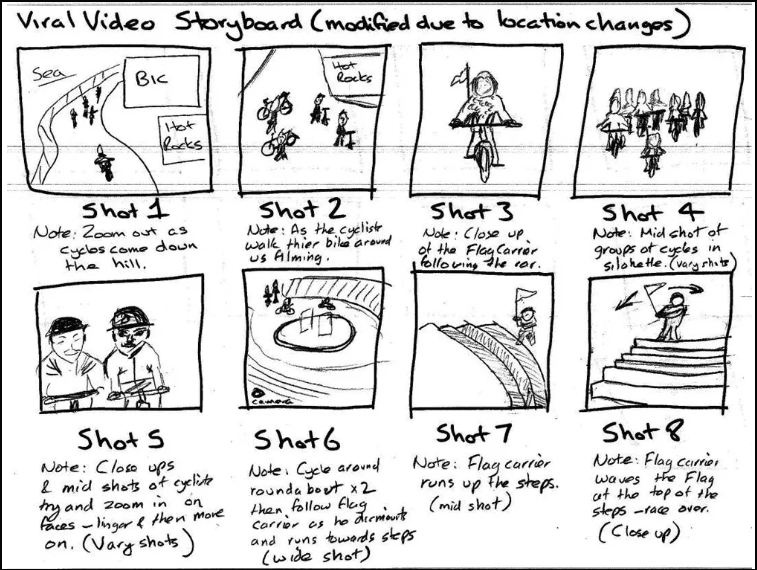 Viral Video Storyboard (modified due to location changes)
Sea
BIC
Hot
Rocks
Shot 1
Note: Zoom out as
cycles come down
the hill.
Hot
Rocks
Shot 2
Note: As the cyclists
walk thier bike around
us filming.
Shot 3
Note: Close up
of the Flag Carrier
following the car.
Shot 4
Note: Mid shot of
groups of cycles in
silohette. (vary shots)
Shot 5
Note: Close ups
& mid shots of cyclists
try and zoom in on
faces - linger & then move
on. (Vary shots)
camera
Shot 6
Note: Cycle around
roundabout x2
then follow flag
carrier as he dismounts
and runs towards steps
(wide shot)
Shot 7
Note: Flag carrier
runs up the steps.
(mid shot)
Shot 8
Note: Flag carrier
waves the Flag
at the top of the
steps - race over.
(Close up)